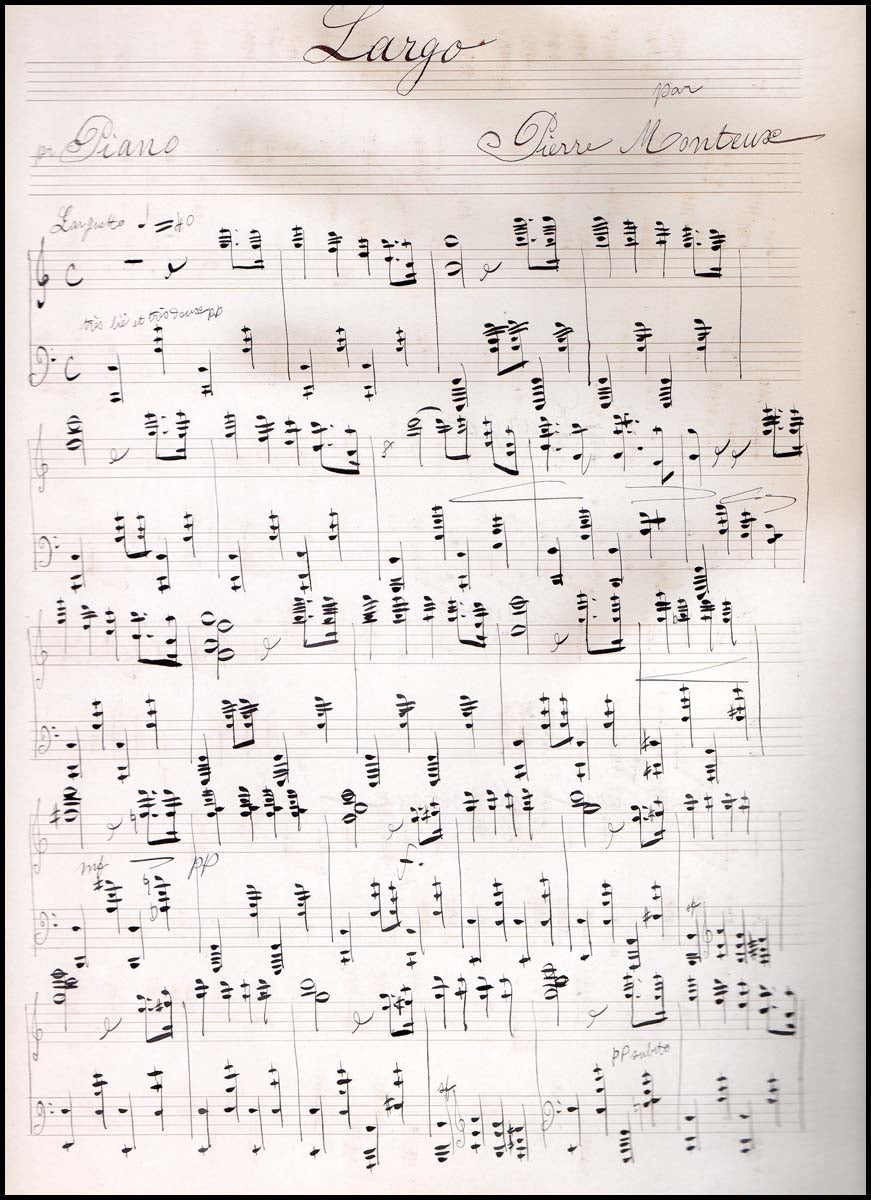 Largo
par
pr Piano
Pierre Monteux
Larghetto ♩ = 40
très lié et très doux pp
mf pp
f
sf
pp subito
sf